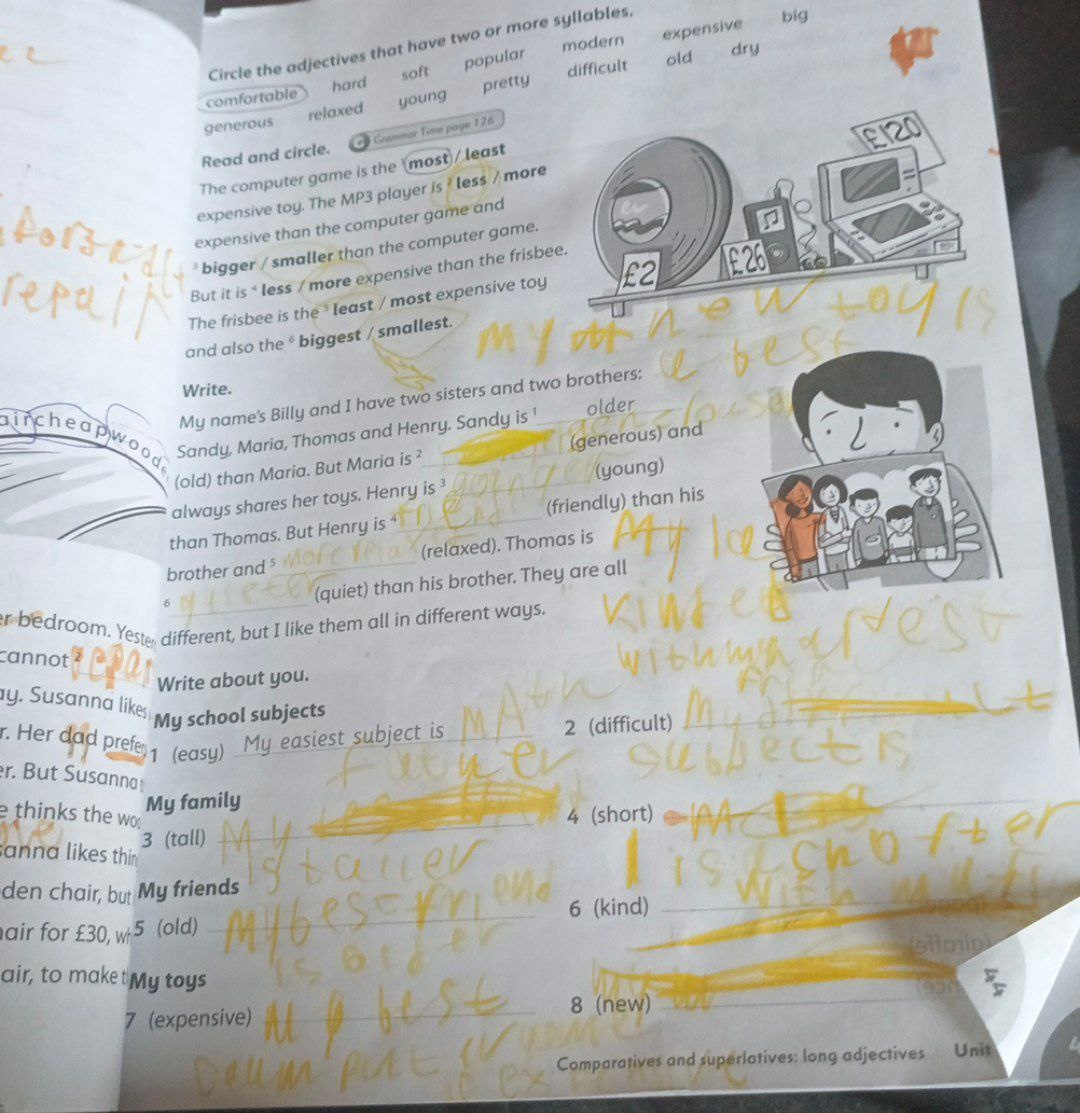 Circle the adjectives that have two or more syllables.
comfortable hard soft popular modern expensive big
generous relaxed young pretty difficult old dry
Read and circle. G Grammar Time page 126
The computer game is the ¹ most / least
expensive toy. The MP3 player is ² less / more
expensive than the computer game and
³ bigger / smaller than the computer game.
But it is ⁴ less / more expensive than the frisbee.
The frisbee is the ⁵ least / most expensive toy
and also the ⁶ biggest / smallest.
£2
£26
£120
My new toy is
a best
Write.
My name's Billy and I have two sisters and two brothers:
Sandy, Maria, Thomas and Henry. Sandy is ¹ older
(old) than Maria. But Maria is ² (generous) and
always shares her toys. Henry is ³ (young)
than Thomas. But Henry is ⁴ (friendly) than his
brother and ⁵ more relaxed (relaxed). Thomas is
⁶ quieter (quiet) than his brother. They are all
different, but I like them all in different ways.
Write about you.
My school subjects
1 (easy) My easiest subject is MAth
2 (difficult) My
subject is
My family
3 (tall) My father
is taller
4 (short)
is shorter
with
My friends
5 (old) My best friend
is older
6 (kind)
My toys
7 (expensive) My best
8 (new)
Comparatives and superlatives: long adjectives Unit
44
repair
aircheapwoode
er bedroom. Yester
cannot ² repair
ay. Susanna likes
r. Her dad prefer
er. But Susanna
e thinks the wo
sanna likes thin
den chair, but
hair for £30, wh
air, to make t